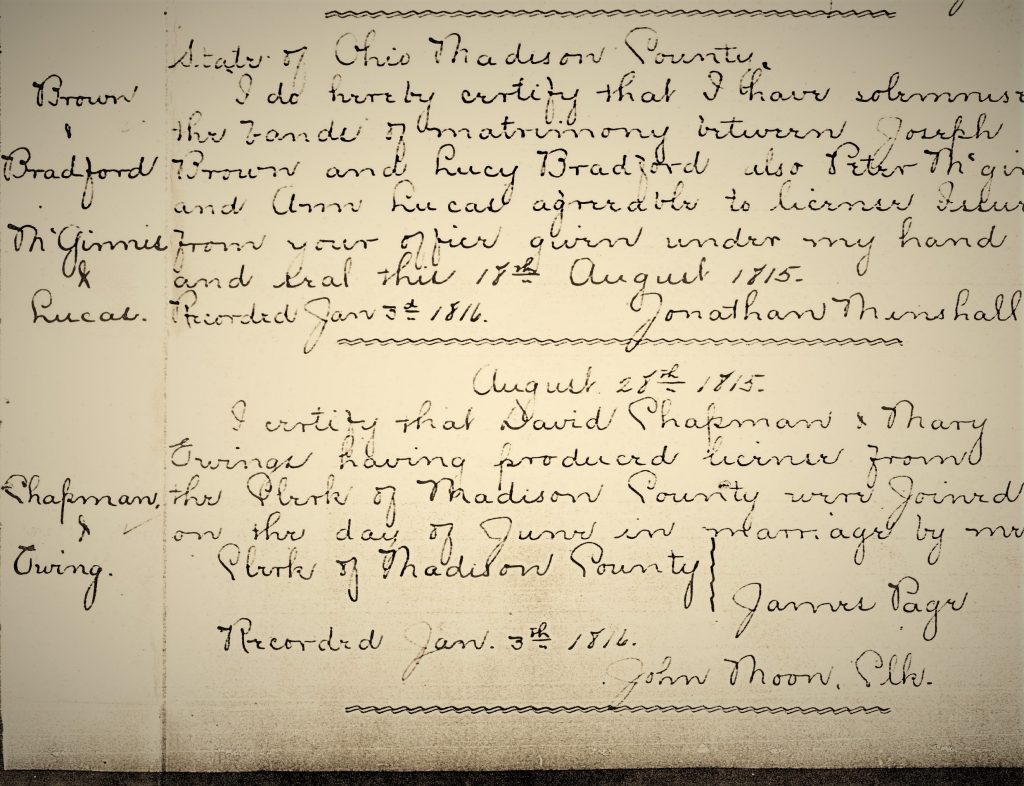 State of Ohio Madison County.
Brown I do hereby certify that I have solemnise
& the bands of matrimony between Joseph
Bradford Brown and Lucy Bradford also Peter McGin
and Ann Lucas agreeable to license Issue
McGinnis from your office given under my hand
& and seal this 18th August 1815.
Lucas. Recorded Jan 3d 1816. Jonathan Minshall
August 28th 1815.
I certify that David Chapman & Mary
Ewings having produced license from
Chapman. the Clerk of Madison County were Joined
& on the day of June in marriage by me
Ewing. Clerk of Madison County
James Page
Recorded Jan. 3th 1816.
John Moon, Clk.